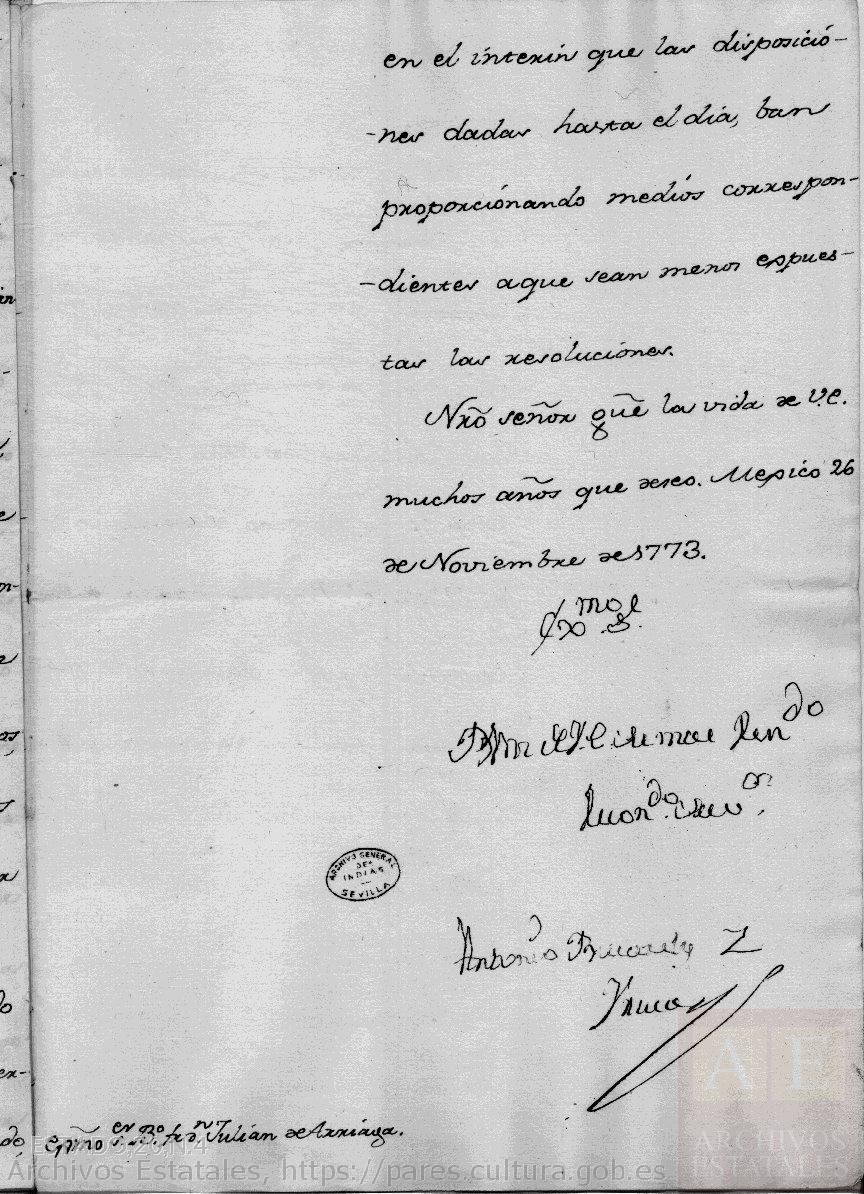 en el ínterin que las disposició-
-nes dadas hasta el día, ban
proporciónando medios correspon-
-dientes a que sean menos expues-
tas las resoluciónes.
Nrõ señor gũe la vida de V.E.
muchos años que deseo. Mexico 26
de Noviembre de 1773.
Exmo. S.
BlM de V.E. su mas Ren.do
Antonio Bucarely y
Ursua
ARCHIVO GENERAL
DE
INDIAS
SEVILLA
S.or B.o fr. D.n Julián de Arriaga.
ESTADO,20,N.4
Archivos Estatales, https://pares.cultura.gob.es
AE
ARCHIVOS
ESTATALES